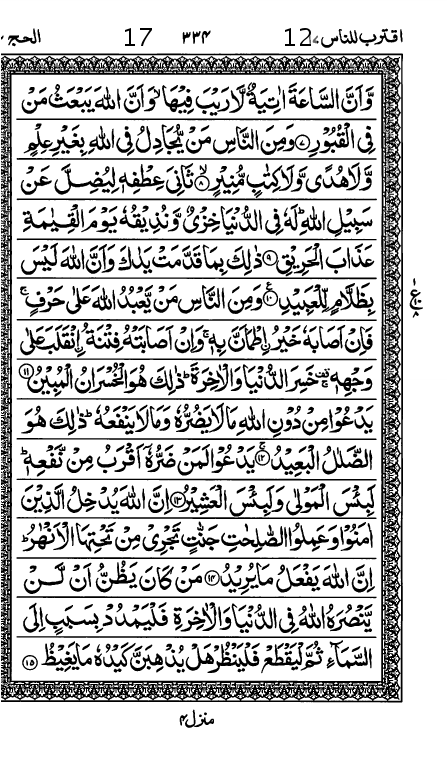 اقترب للناس ١٧ 12 ٣٣٤ 17 الحج
وَّاَنَّ السَّاعَةَ اٰتِيَةٌ لَّا رَيْبَ فِيْهَا ۙ وَاَنَّ اللّٰهَ يَبْعَثُ مَنْ
فِى الْقُبُوْرِ ﴿۷﴾ وَمِنَ النَّاسِ مَنْ يُّجَادِلُ فِى اللّٰهِ بِغَيْرِ عِلْمٍ
وَّلَا هُدًى وَّلَا كِتٰبٍ مُّنِيْرٍ ۙ ﴿۸﴾ ثَانِىَ عِطْفِهٖ لِيُضِلَّ عَنْ
سَبِيْلِ اللّٰهِ ؕ لَهٗ فِى الدُّنْيَا خِزْىٌ وَّنُذِيْقُهٗ يَوْمَ الْقِيٰمَةِ
عَذَابَ الْحَرِيْقِ ﴿۹﴾ ذٰلِكَ بِمَا قَدَّمَتْ يَدٰكَ وَاَنَّ اللّٰهَ لَيْسَ
بِظَلَّامٍ لِّلْعَبِيْدِ ﴿۱۰﴾ ع وَمِنَ النَّاسِ مَنْ يَّعْبُدُ اللّٰهَ عَلٰى حَرْفٍ ۚ
فَاِنْ اَصَابَهٗ خَيْرُ ۨاطْمَاَنَّ بِهٖ ۚ وَاِنْ اَصَابَتْهُ فِتْنَةُ ۨانْقَلَبَ عَلٰى
وَجْهِهٖ ۚ خَسِرَ الدُّنْيَا وَالْاٰخِرَةَ ؕ ذٰلِكَ هُوَ الْخُسْرَانُ الْمُبِيْنُ ﴿۱۱﴾
يَدْعُوْا مِنْ دُوْنِ اللّٰهِ مَا لَا يَضُرُّهٗ وَمَا لَا يَنْفَعُهٗ ؕ ذٰلِكَ هُوَ
الضَّلٰلُ الْبَعِيْدُ ۚ ﴿۱۲﴾ يَدْعُوْا لَمَنْ ضَرُّهٗۤ اَقْرَبُ مِنْ نَّفْعِهٖ ؕ
لَبِئْسَ الْمَوْلٰى وَلَبِئْسَ الْعَشِيْرُ ﴿۱۳﴾ اِنَّ اللّٰهَ يُدْخِلُ الَّذِيْنَ
اٰمَنُوْا وَعَمِلُوا الصّٰلِحٰتِ جَنّٰتٍ تَجْرِىْ مِنْ تَحْتِهَا الْاَنْهٰرُ ؕ
اِنَّ اللّٰهَ يَفْعَلُ مَا يُرِيْدُ ﴿۱۴﴾ مَنْ كَانَ يَظُنُّ اَنْ لَّنْ
يَّنْصُرَهُ اللّٰهُ فِى الدُّنْيَا وَالْاٰخِرَةِ فَلْيَمْدُدْ بِسَبَبٍ اِلَى
السَّمَآءِ ثُمَّ لْيَقْطَعْ فَلْيَنْظُرْ هَلْ يُذْهِبَنَّ كَيْدُهٗ مَا يَغِيْظُ ﴿۱۵﴾
منزل۴